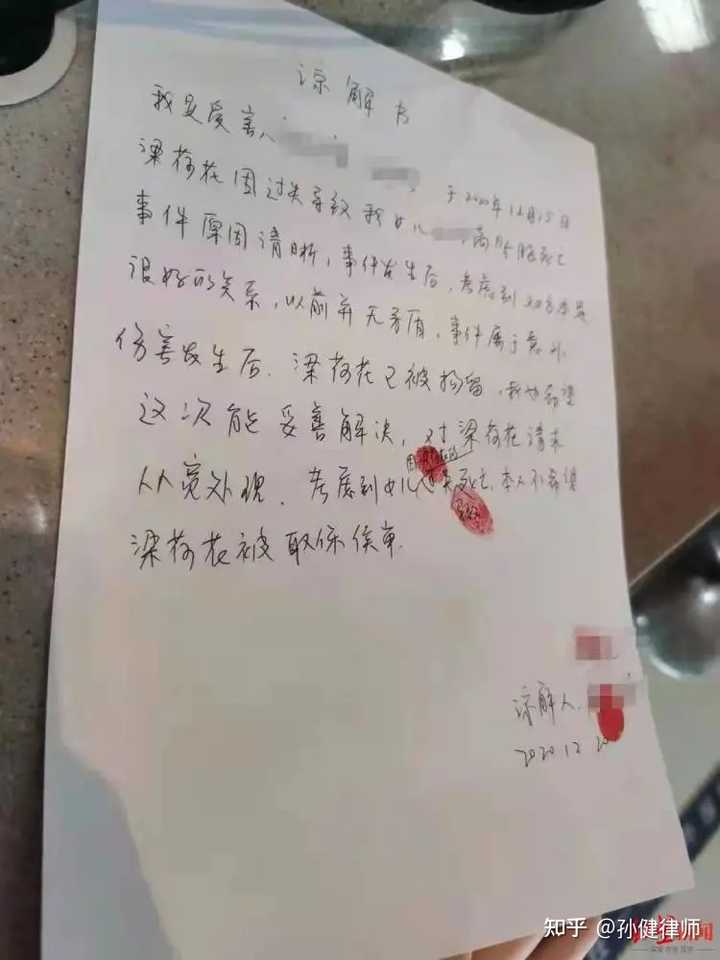 谅解书
我是受害人
梁荷花因过失导致我女儿 于2020年12月15日
死亡
事件原因清晰,事件发生后,考虑到对方
很好的关系,以前并无矛盾,事件属于意外
伤害发生后,梁荷花已被拘留,我也希望
这次能妥善解决,对梁荷花请求
从宽处理,考虑到女儿过失死亡,本人不希望
梁荷花被取保候审.
谅解人
2020.12.20
知乎 @孙健律师